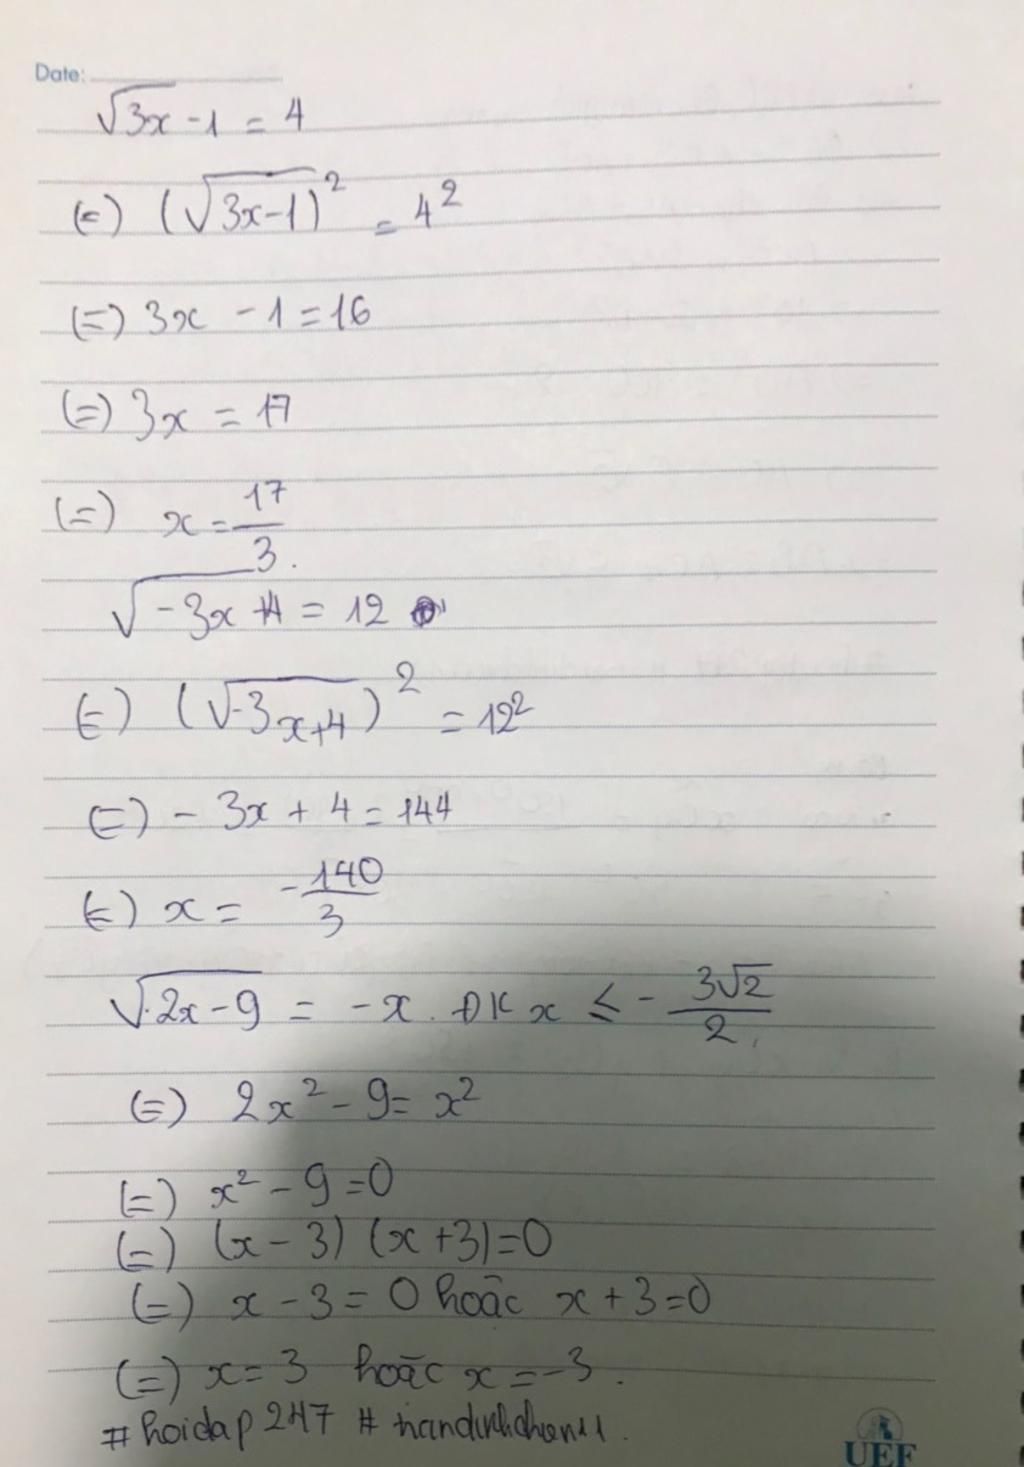 Date:
√3x - 1 = 4
(=) (√3x-1)² = 4²
(=) 3x - 1 = 16
(=) 3x = 17
(=) x = 17/3.
√-3x+4 = 12
(=) (√-3x+4)² = 12²
(=) - 3x + 4 = 144
(=) x = -140/3
√2x-9 = -x. ĐK x ≤ - 3√2/2.
(=) 2x² - 9 = x²
(=) x² - 9 = 0
(=) (x - 3) (x + 3) = 0
(=) x - 3 = 0 hoặc x + 3 = 0
(=) x = 3 hoặc x = -3.
# hoidap 247 #
UEF